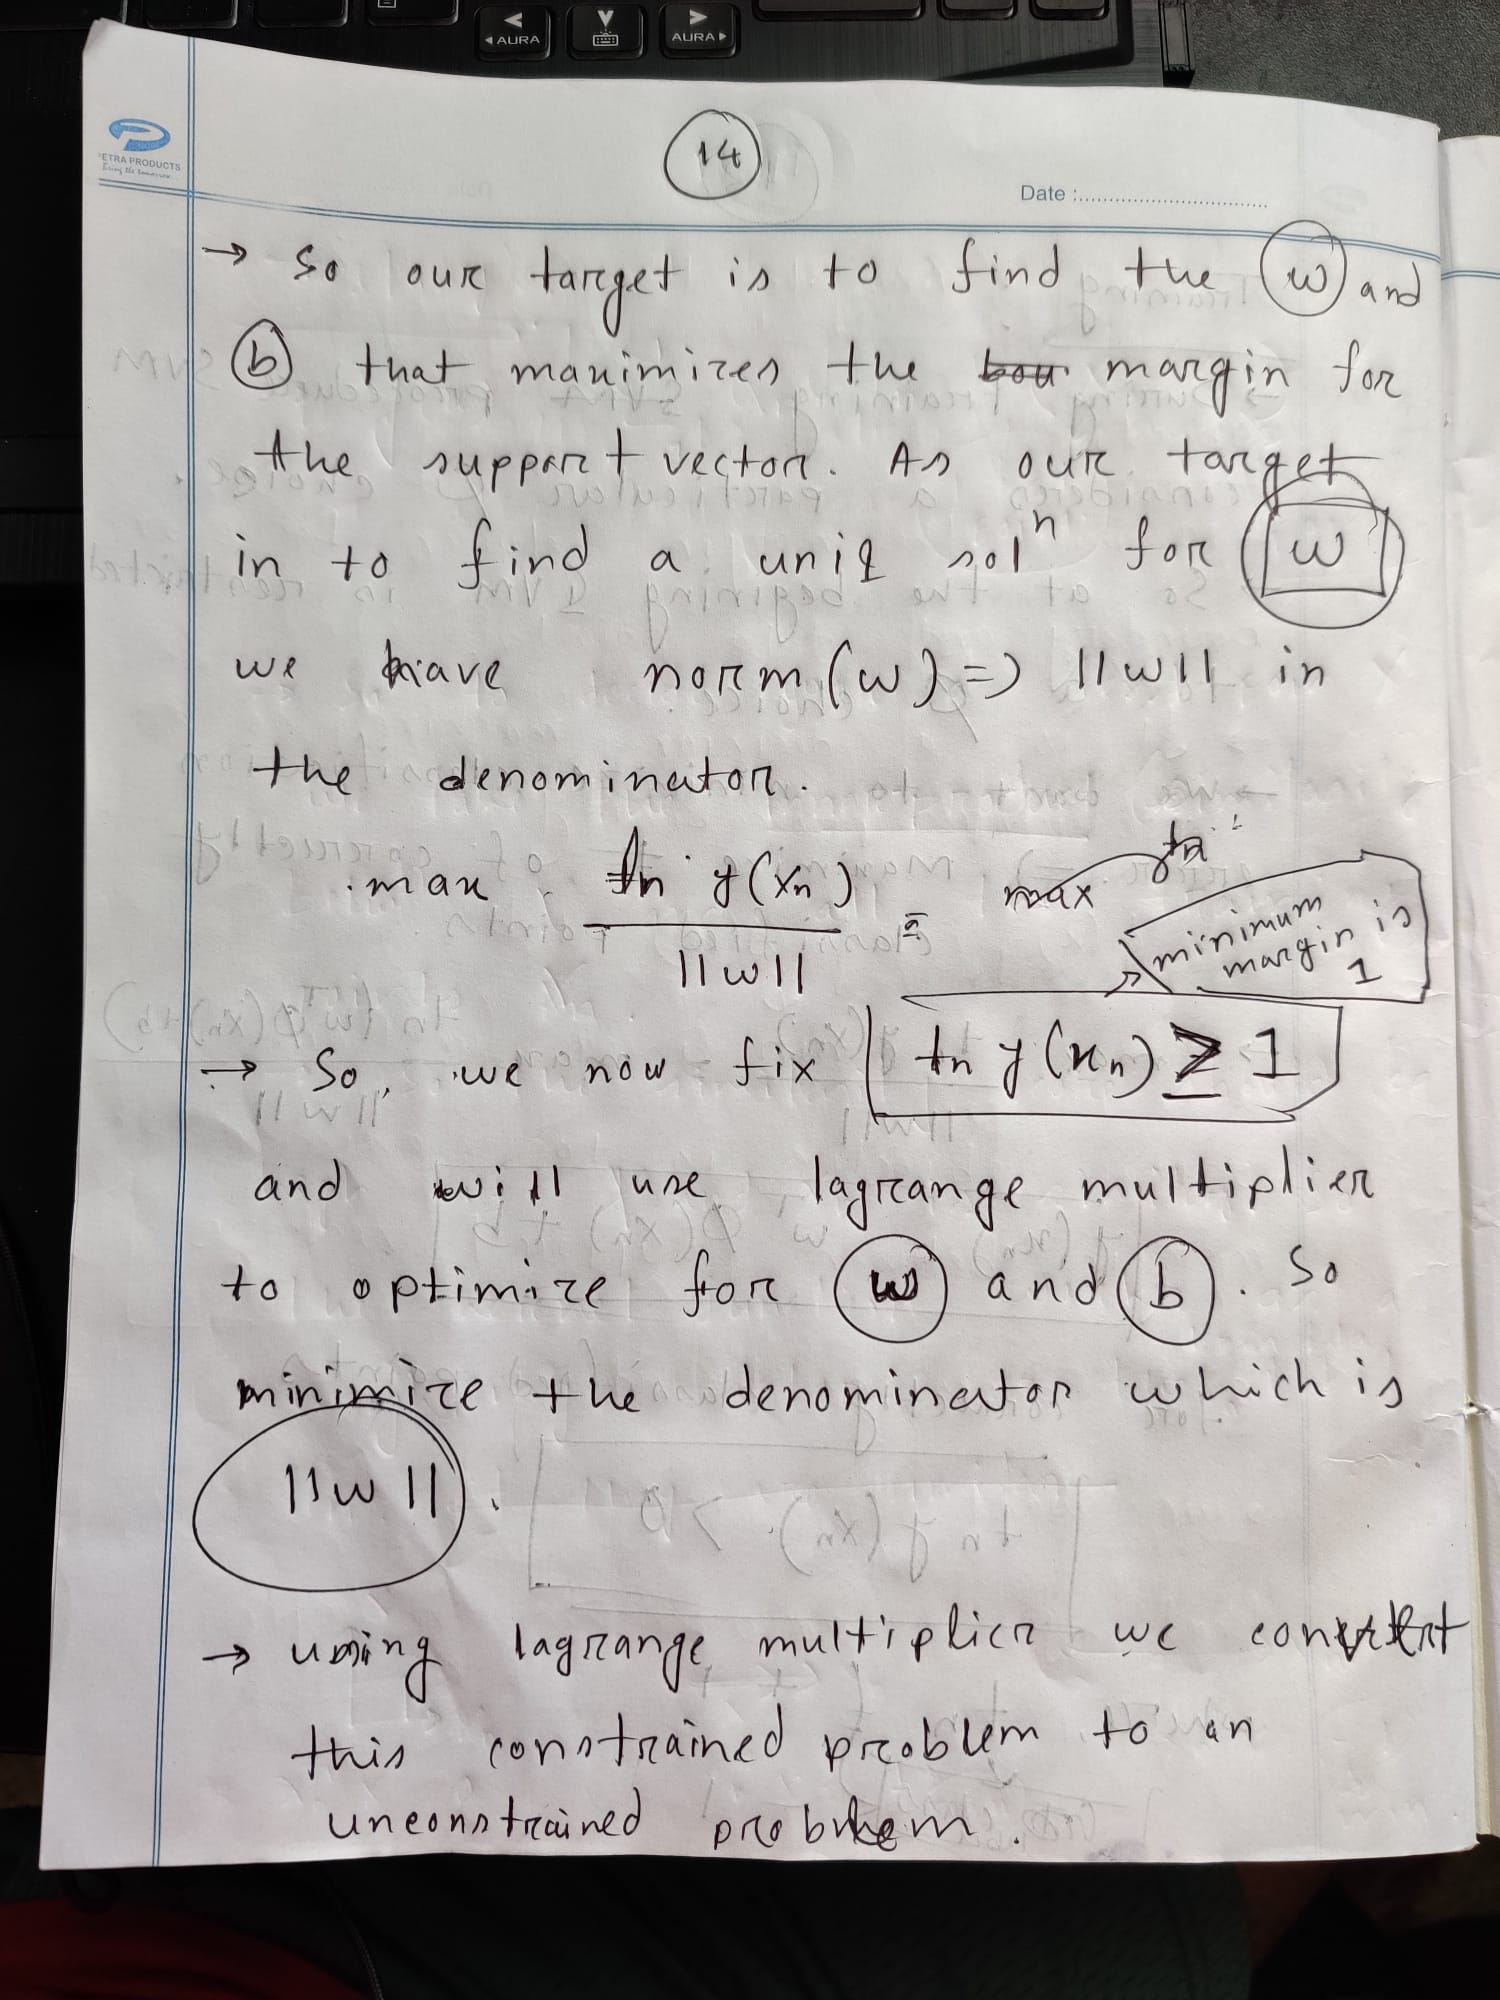 ◄ AURA
AURA ►
PETRA PRODUCTS
Bring the tomorrow
14
Date :
→ So our target is to find the w and
b that maximizes the bou margin for
the support vector. As our target
is to find a uniq solⁿ for w
we have norm (w) => ||w|| in
the denominator.
max tn y(xn) / ||w|| = max tn
minimum
margin is
1
→ So, we now fix tn y(xn) ≥ 1
and will use lagrange multiplier
to optimize for w and b. So
minimize the denominator which is
||w||.
→ using lagrange multiplier we convert
this constrained problem to an
unconstrained problem.